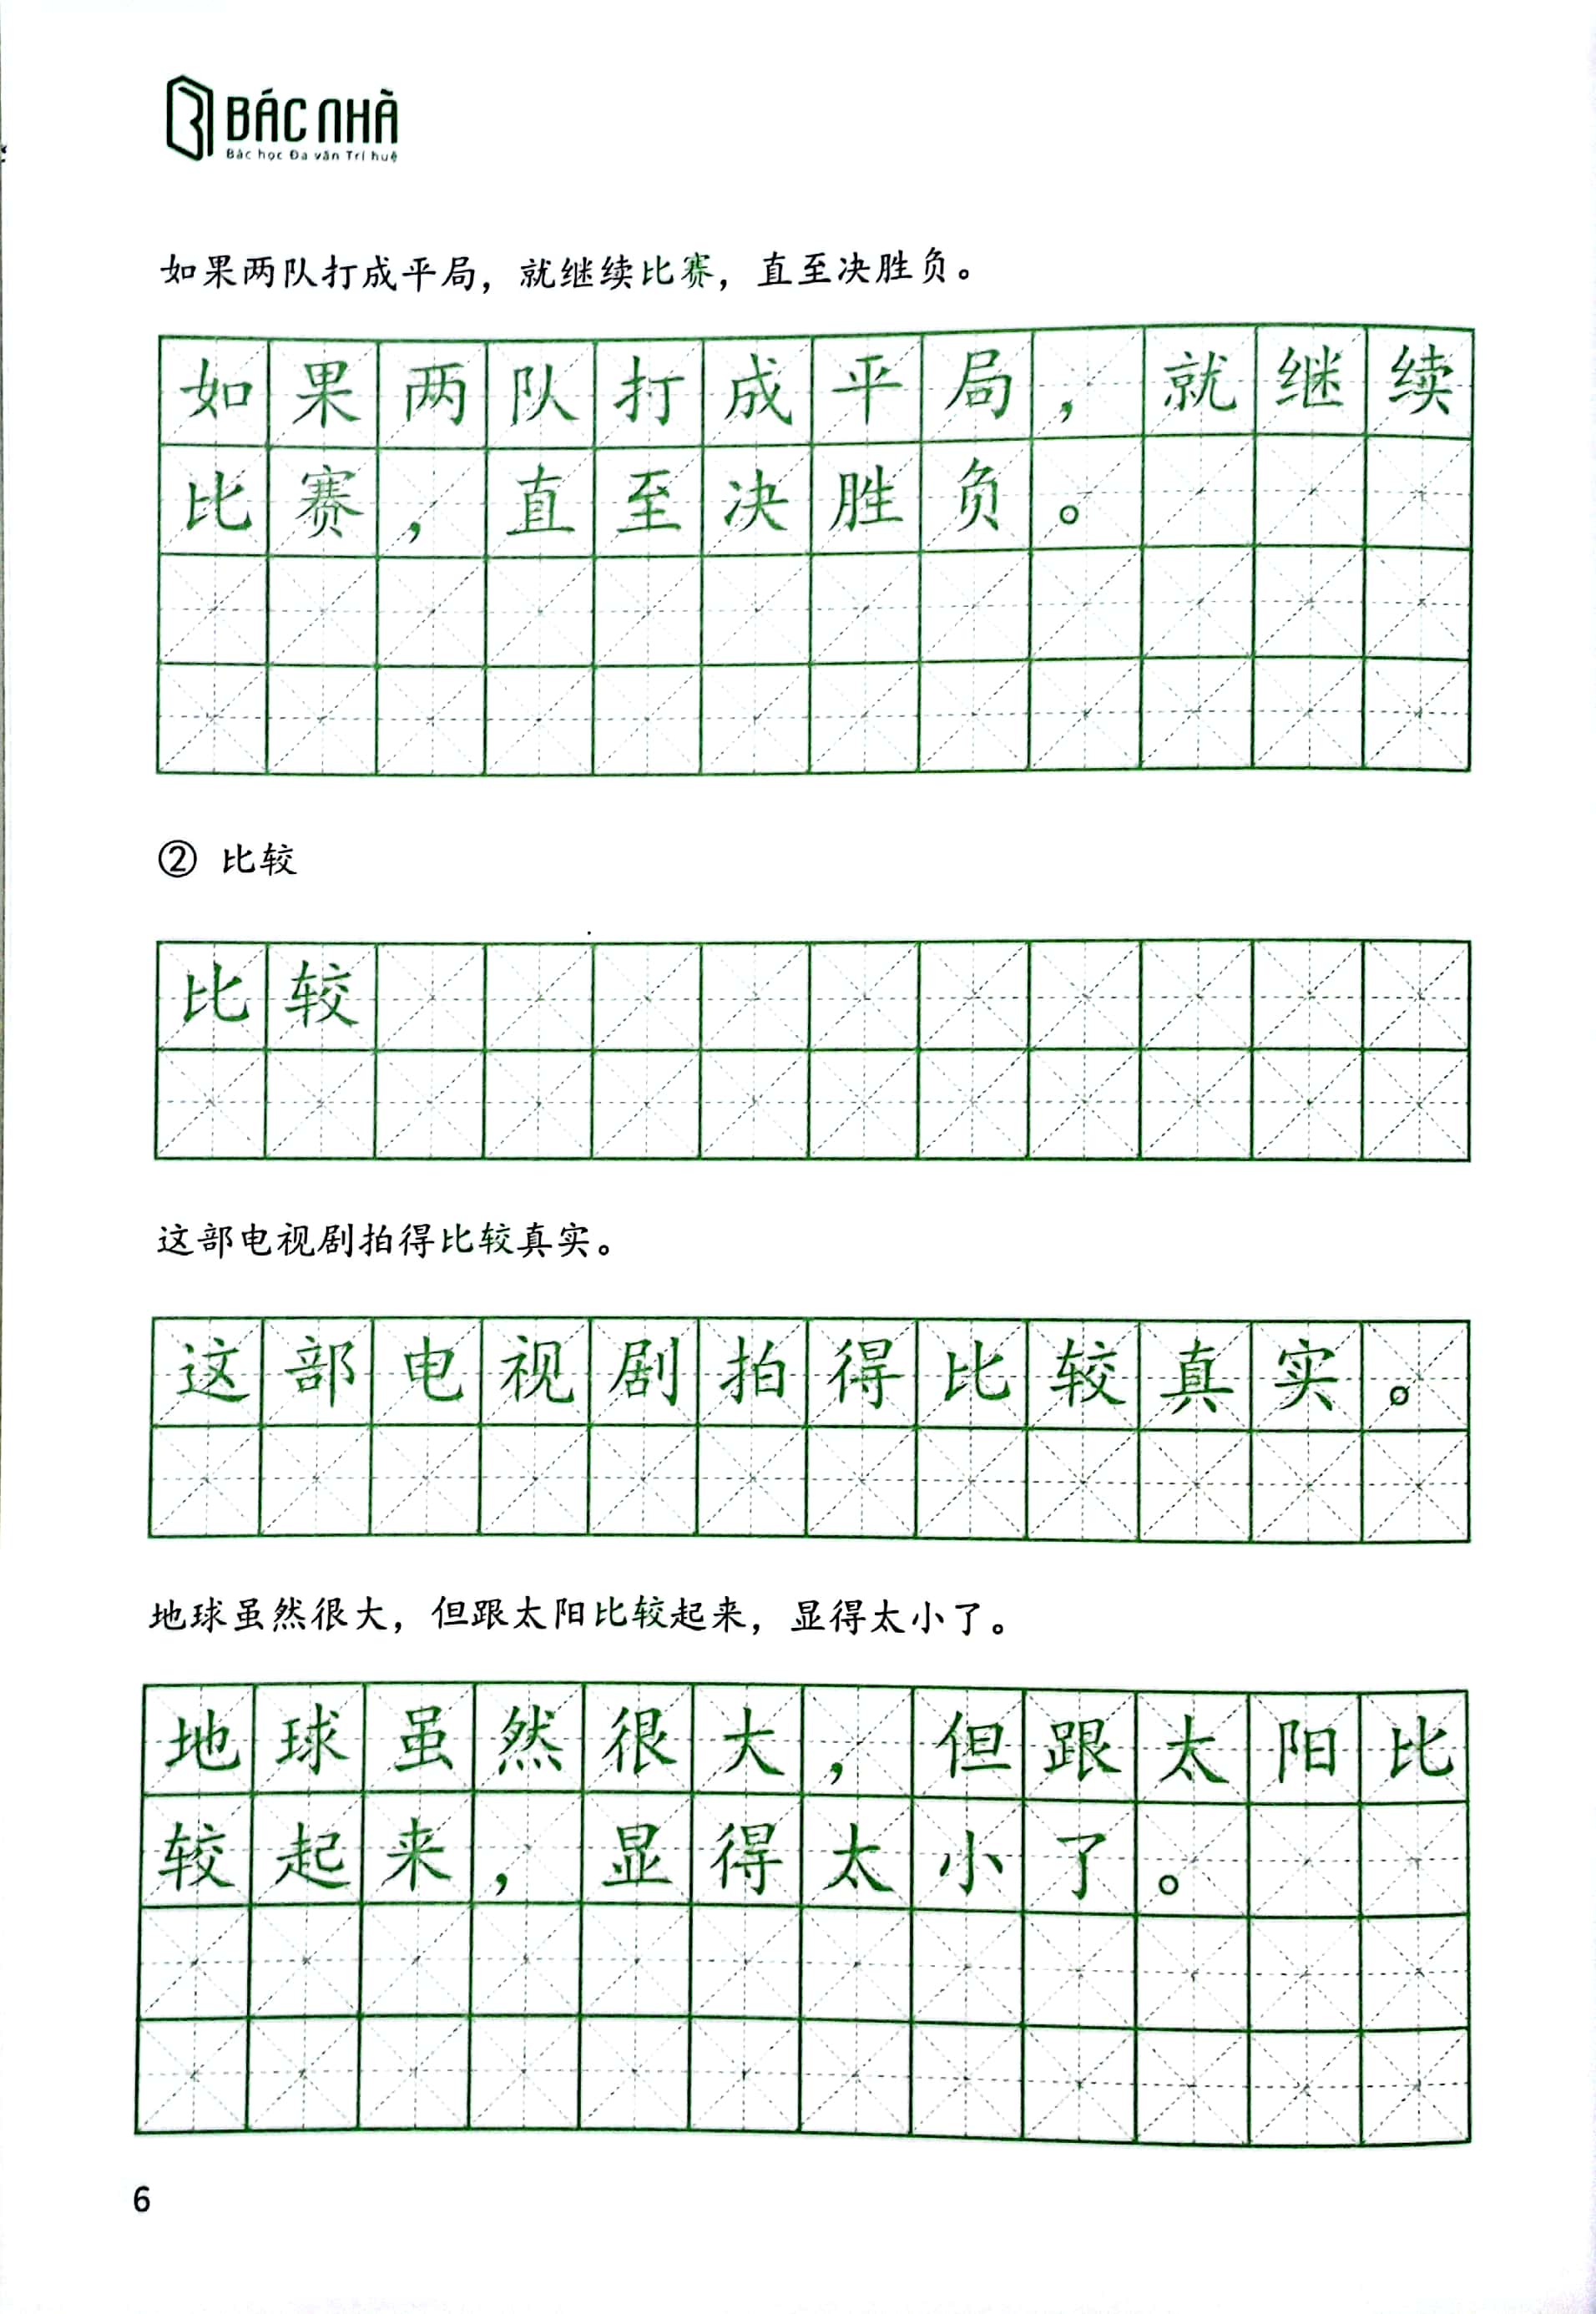 BÁC NHÃ
Bác học Đa văn Trí huệ
如果两队打成平局，就继续比赛，直至决胜负。
如果两队打成平局，就继续
比赛，直至决胜负。
② 比较
比较
这部电视剧拍得比较真实。
这部电视剧拍得比较真实。
地球虽然很大，但跟太阳比较起来，显得太小了。
地球虽然很大，但跟太阳比
较起来，显得太小了。
6